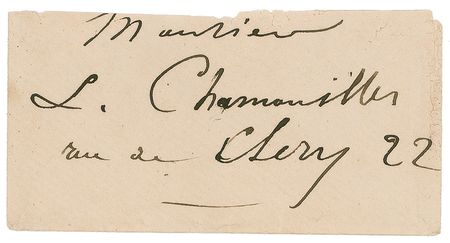 Monsieur
L. Chamouillet
rue de Clery 22